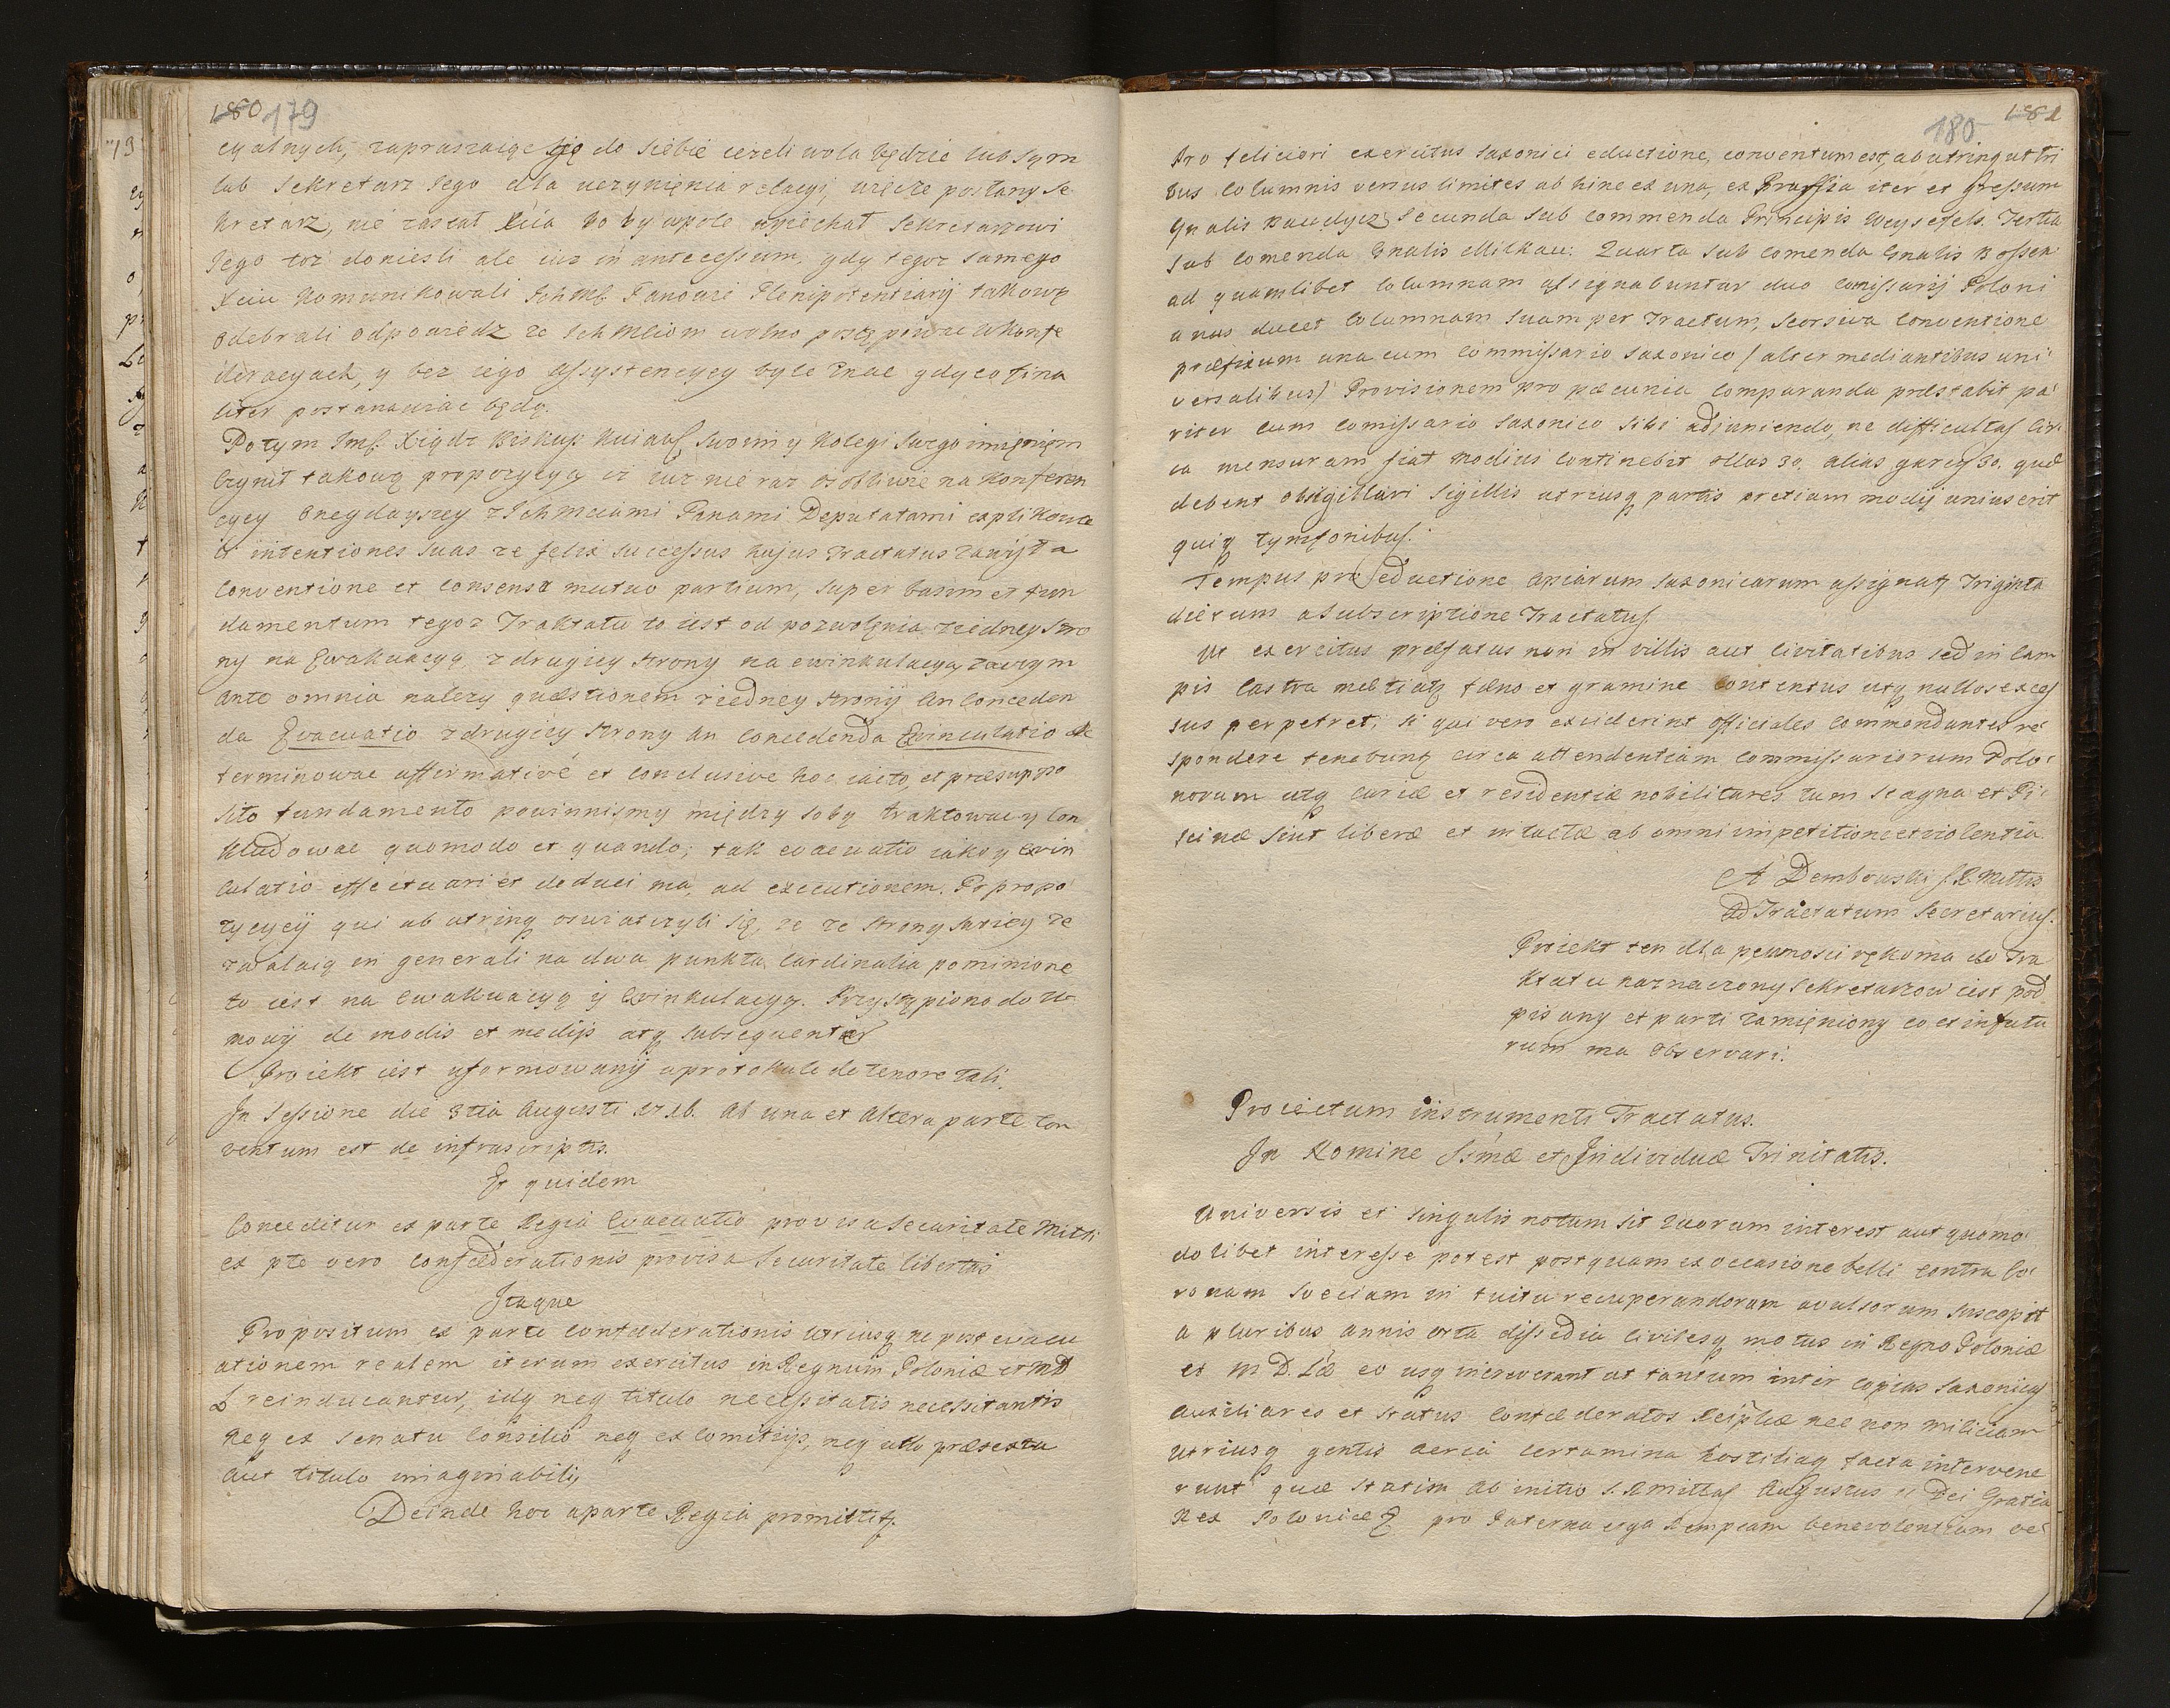 180 179
cyalnych, zapraszaiąc Go do siebie iezeli wola będzie lub sym
lub Sekretarz Jego dla uczynięnia relacyi, więcże posłany Se
kretarz, nie zastał Xcia bo był w pole wyiechał Sekretarzowi
Jego toż doniesli ale iuz in antecessum, gdy tegoz samego
Xciu komunikowali Ichmć Panowie Plenipotentiarij takową
odebrali odpowiedz ze Ichmciom wolno postępować w Konfe
deracyach, y bez iego assystencyey byle znać gdy co fina
liter postanawiac będą.
Potym Jmć Xiądz Biskup Kuiaws. swoim y Kolegi swego imięnięm
czynił takową propozycyą iz iuz nie raz osobliwie na Konferen
cyey onegdayszey z Ichmciami Panami Deputatami explikował
intentiones suas ze felix successus hujus Tractatus zawisł a
Conventione et Consensu mutuo partium, super basim et fun
damentum tegoz Traktatu to iest od pozwolęnia z iedney stro
ny na Ewakuacyą z drugiey strony na ewinkulacyą, zaczym
ante omnia nalezy quæstionem z iedney strony an conceden
da Evacuatio z drugiey strony an concedenda Evinculatio de
terminowac affirmativè et conclusive hoc iacto, et præsuppo
sito fundamento powinnismy między sobą traktowac y con
kludowac quomodo et quando; tak evacuatio iako y Evin
culatio effectuari et deduci ma, ad executionem. Po propo
zycyey qui ab utrinq oswiatczyli się, ze ze strony swoiey ze
zwalaią in generali na dwa punkta Cardinalia pominione
to iest na Ewakuacyą y Ewinkulacyą. Przystąpiono do u
mowy de modis et medijs atq subsequentes
Proiekt iest uformowanij w protokule de tenore tali.
In Sessione die 3tia Augusti 1716. ab una et altera parte con
ventum est de infrascriptis.
Et quidem
Conceditur ex parte Regia Evacuatio provisa securitate Mttis
ex pte vero confœderationis provisa securitate libertatis
Itaque
Propositum ex parte confœderationis utriusq ne post evacu
ationem realem iterum exercitus in Regnum Poloniæ et M D
L reinducantur, idq neq titulo necessitatis necessitantis
neq ex Senatu Consilio neq ex Comitijs, neq ullo prætextu
aut titulo imaginabili,
Deinde hoc a parte Regia promittit.
180 181
Pro feliciori exercitus Saxonici eductione, conventum est, ab utrinq ut tri
bus columnis versus limites ab hinc ex una, ex Prussia iter et gressum
Gnalis Baudycz, secunda sub commenda Principis Weysefels. Tertia
sub comenda Gnalis Milkau. Quarta sub comenda Gnalis Bossen
ad quamlibet columnam assignabuntur duo comissarij Poloni
unus ducet columnam suam per tractum, seorsiva conventione
præfixum una cum commissario Saxonico / alter mediantibus uni
versalibus / Provisionem pro pæcunia comparanda præstabit pa
riter cum comissario Saxonico sibi adjuniendo, ne difficultas cir
ca mensuram fiat modius continebit ollas 30. alias garcy 30. quæ
debent obsigillari sigillis utriusq partis pretium modij unius erit
quinq tymfonibus.
Tempus pro eductione copiarum saxonicarum assignat triginta
dierum a subscriptione Tractatus.
Ut exercitus præfatus non in villis aut civitatibus sed in cam
pis castra metiatq fæno et gramine contentus utq nullos exces
sus perpetret, si qui vero exciderint officiales commendantes re
spondere tenebunt circa attendentiam commissariorum Polo
norum utq curiæ et residentiæ nobilitares tum stagna et Pi
scinæ sint liberæ et intactæ ab omni impetitione et violentia.
A Dembowski S. R. Mttis
ad Tractatum Secretarius.
Proiekt ten dla pewnosci rękoma do Tra
ktatu naznaczony Sekretarzow iest pod
pisany et parti zamięniony co et in futu
rum ma observari.
Proiectum instrumenti Tractatus.
In Nomine Ssmæ et Individuæ Trinitatis.
Universis et singulis notum sit quorum interest aut quomo
do libet interesse potest postquam ex occasione belli contra Co
ronam Sveciam in tuitu recuperandorum avulsorum suscepit
a pluribus annis orta dissedia civilesq motus in Regno Poloniæ
et M D. Læ eo usq increverant ut tantum inter copias Saxonicas
auxiliares et status confæderatos Reiplæ nec non miliciam
utriusq gentis aeria certamina hostiliaq facta intervene
runt quæ statim ab initio S. R Mittas Augustus II Dei Gratia
Rex Poloniæ pro Paterna erga Rempcam benevolentiam ve